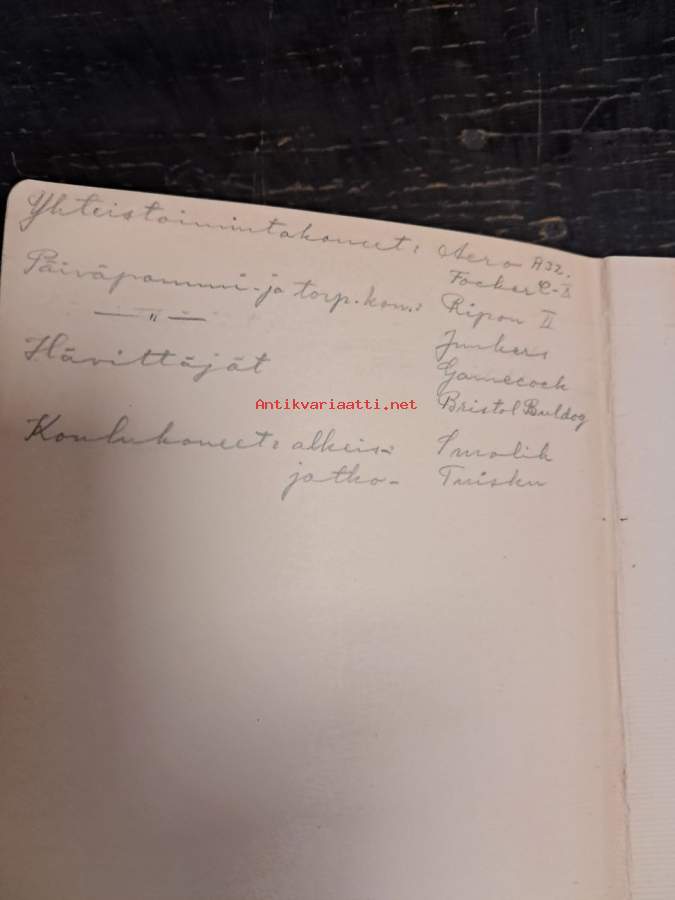 Yhteistoimintakoneet: Aero A32.
Focker C-X
Päiväpommi- ja torp.kon.: Ripon II
— " — Junkers
Hävittäjät Gamecock
Antikvariaatti.net
Bristol Buldog
Koulukoneet: alkeis-: Smolik
jatko- Tuisku